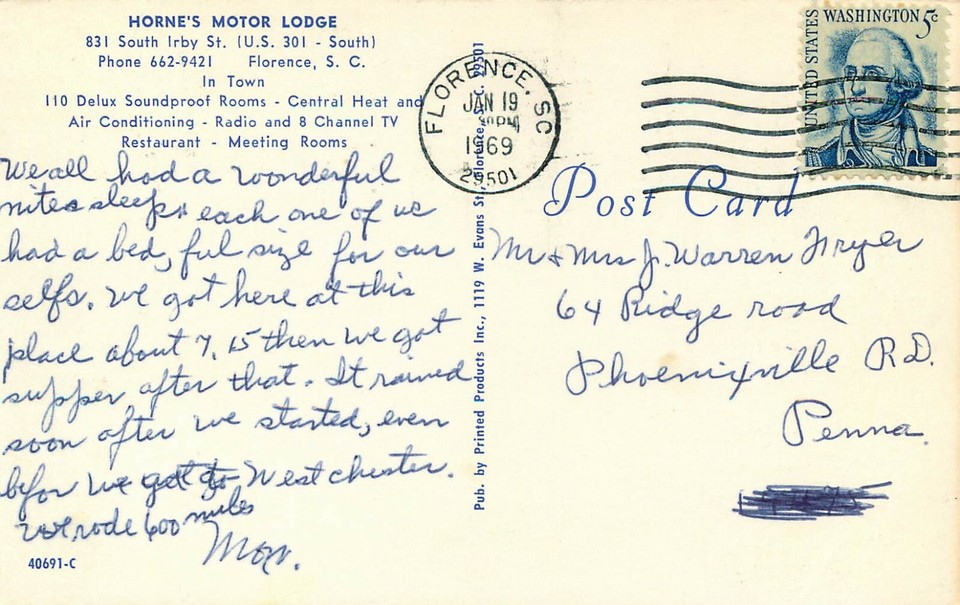 HORNE'S MOTOR LODGE
831 South Irby St. (U.S. 301 - South)
Phone 662-9421 Florence, S. C.
In Town
110 Delux Soundproof Rooms - Central Heat and
Air Conditioning - Radio and 8 Channel TV
Restaurant - Meeting Rooms
We all had a wonderful
nites sleep, each one of us
had a bed, ful size for our
selfs. We got here at this
place about 7.15 then we got
supper after that. It rained
soon after we started, even
befor we got to Westchester.
we rode 600 miles
Mom.
40691-C
Pub. by Printed Products Inc., 1119 W. Evans St., Florence, S. C. 29501
FLORENCE, SC
JAN 19
PM
1969
29501
UNITED STATES
WASHINGTON 5c
Post Card
Mr & Mrs J. Warren Fryer
64 Ridge road
Phoenixville R.D.
Penna.